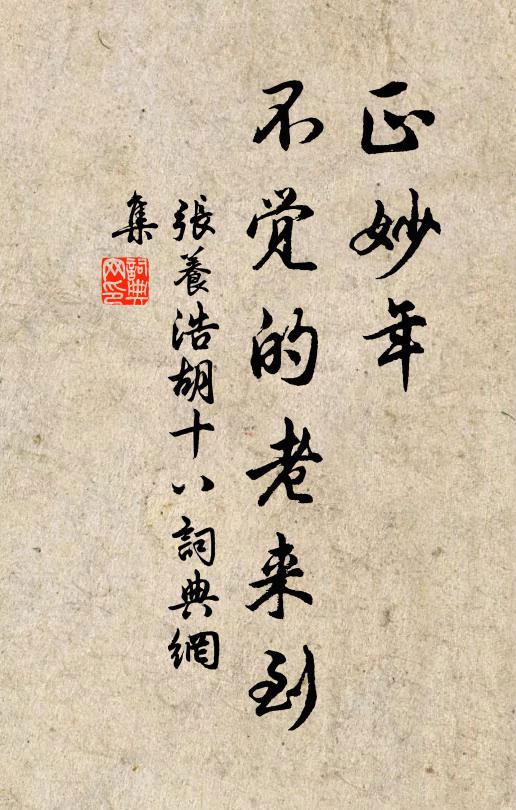 正妙年
不觉的老来到
張養浩胡十八詞典網
集
詞典网印